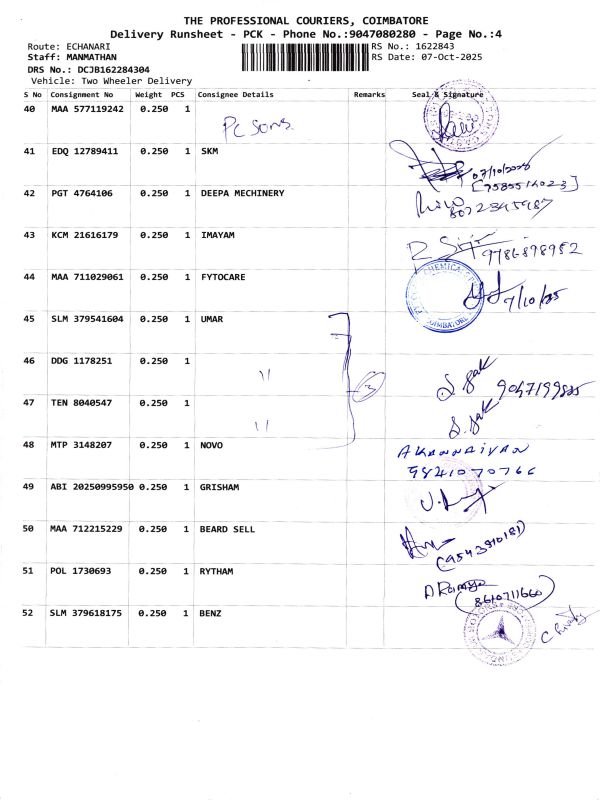 THE PROFESSIONAL COURIERS, COIMBATORE
Delivery Runsheet - PCK - Phone No.:9047080280 - Page No.:4
Route: ECHANARI RS No.: 1622843
Staff: MANMATHAN RS Date: 07-Oct-2025
DRS No.: DCJB162284304
Vehicle: Two Wheeler Delivery
S No Consignment No Weight PCS Consignee Details Remarks Seal & Signature
40 MAA 577119242 0.250 1
Pc Sons.
41 EDQ 12789411 0.250 1 SKM
07/10/2025
42 PGT 4764106 0.250 1 DEEPA MECHINERY
43 KCM 21616179 0.250 1 IMAYAM
9786898952
44 MAA 711029061 0.250 1 FYTOCARE
7/10/25
45 SLM 379541604 0.250 1 UMAR
46 DDG 1178251 0.250 1 "
3
9047199885
47 TEN 8040547 0.250 1 "
48 MTP 3148207 0.250 1 NOVO
AKANNAIYAN
9841070766
49 ABI 20250995950 0.250 1 GRISHAM
50 MAA 712215229 0.250 1 BEARD SELL
(9543910181)
51 POL 1730693 0.250 1 RYTHAM
8610711660
52 SLM 379618175 0.250 1 BENZ